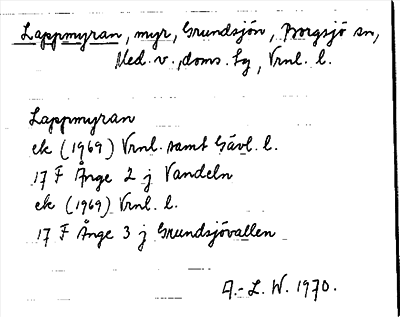 Lappmyran, myr, Grundsjön, Borgsjö sn,
Med. v. doms. tg, Vrnl. l.
Lappmyran
ek (1969) Vrnl. samt Gävl. l.
17 F Ånge 2 j Vandeln
ek (1969) Vrnl. l.
17 F Ånge 3 j Grundsjövallen
A.-L. W. 1970.